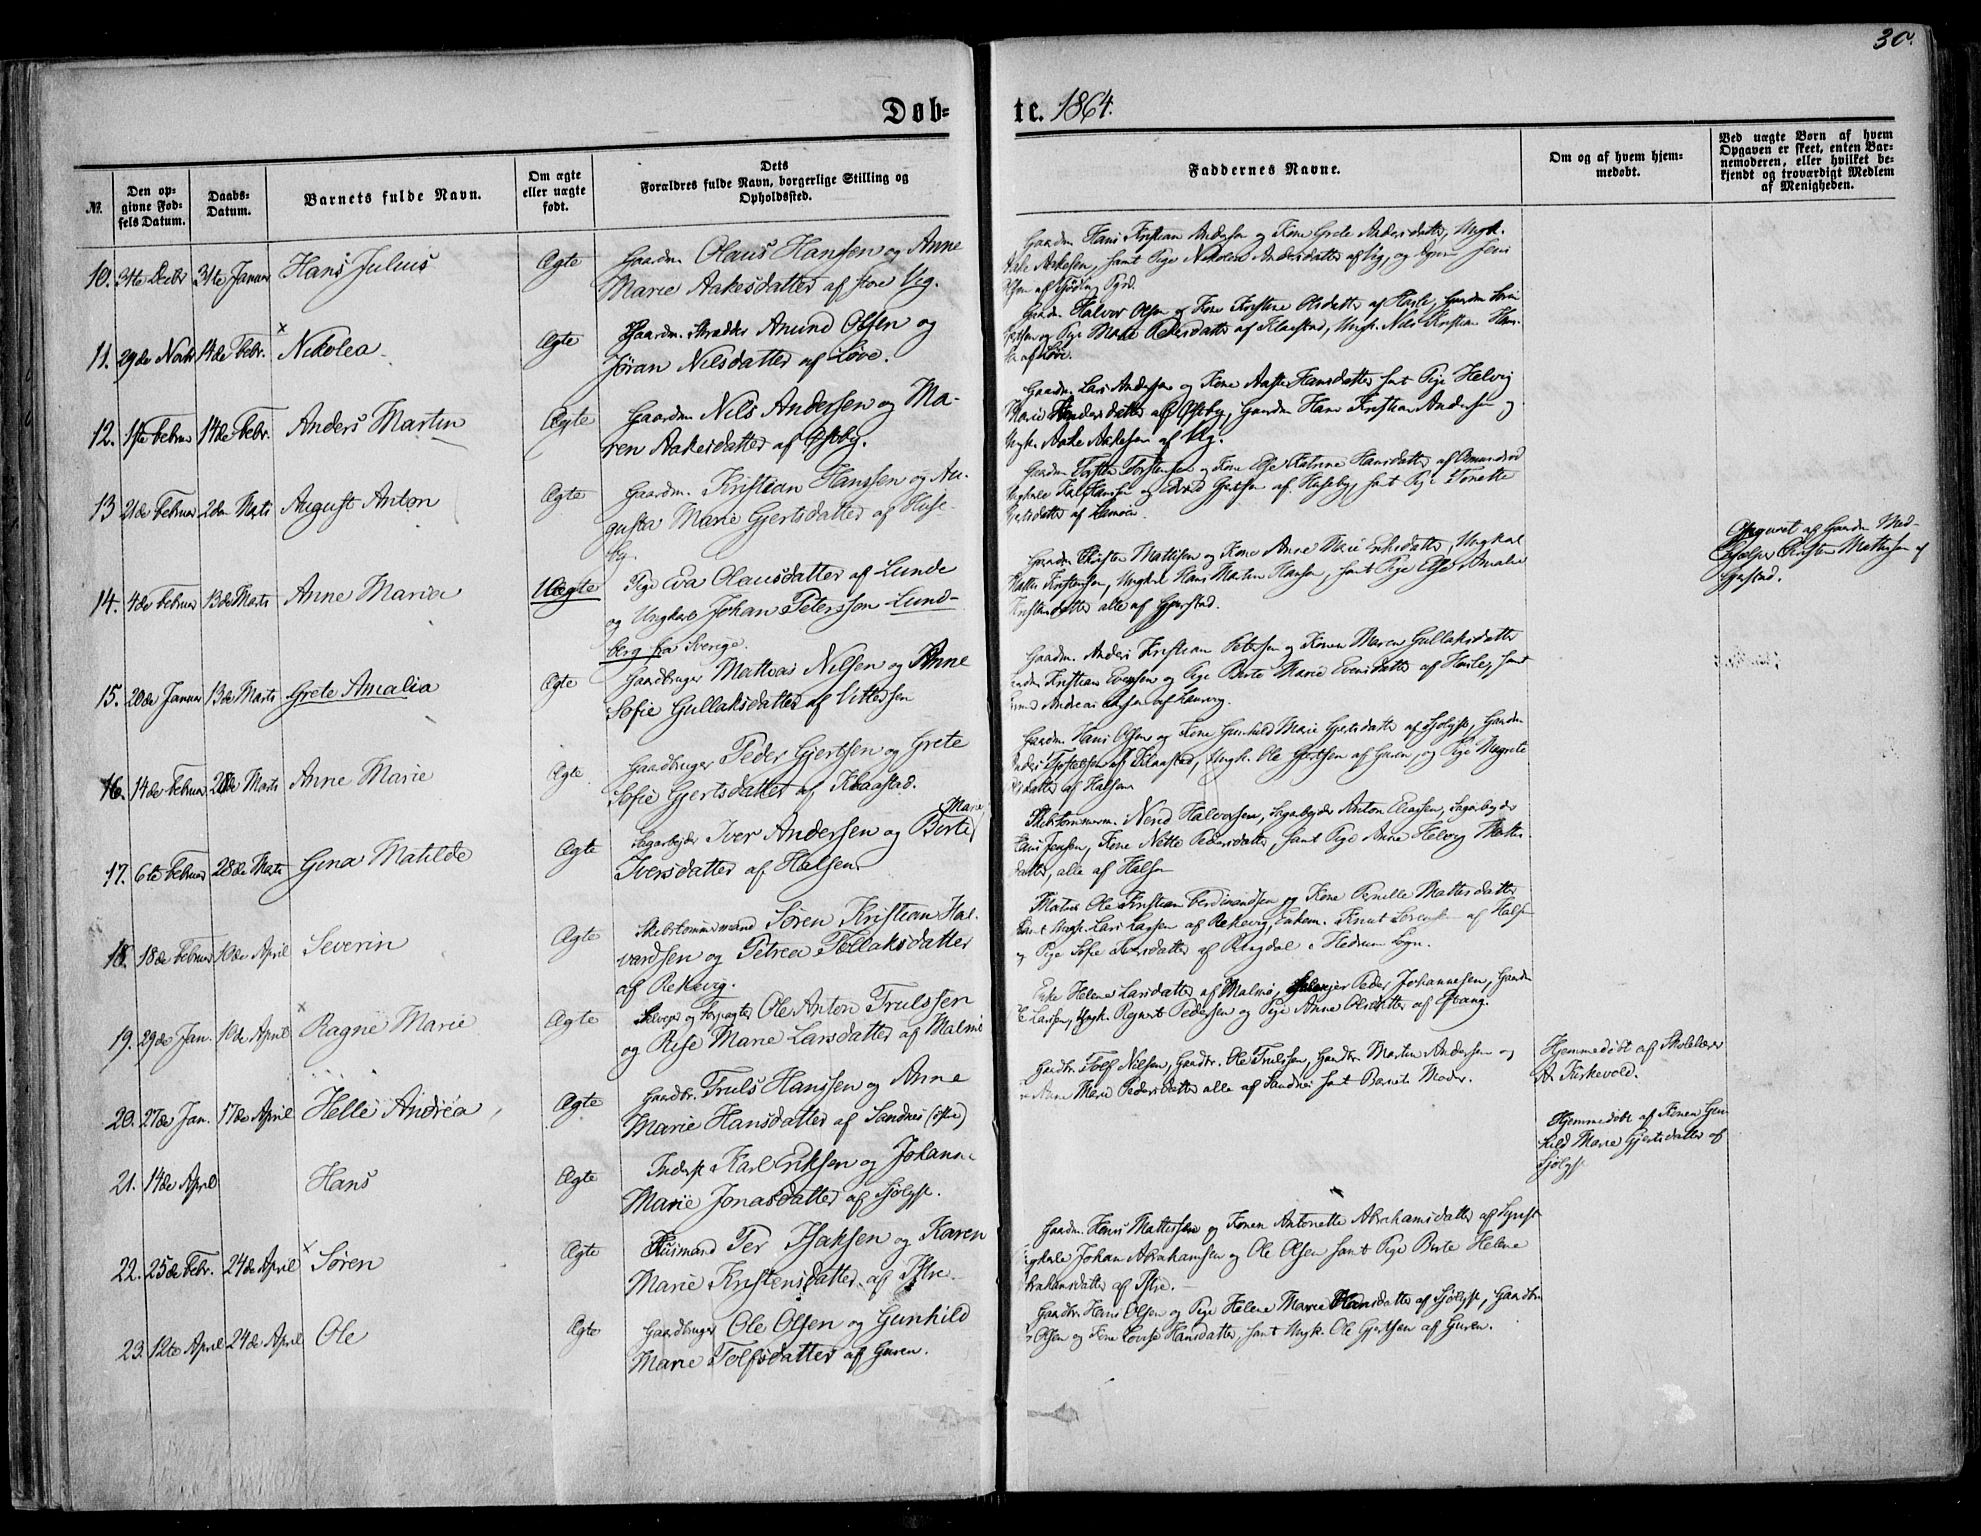 30.
Døb=
te. 1864.
№.
Den op=
givne Fød=
sels Datum.
Daabs=
Datum.
Barnets fulde Navn.
Om ægte
eller uægte
født.
Dets
Forældres fulde Navn, borgerlige Stilling og
Opholdssted.
Faddernes Navne.
Om og af hvem hjem=
medøbt.
Ved uægte Børn af hvem
Opgaven er skeet, enten Bar=
nemoderen, eller hvilket be=
kjendt og troværdigt Medlem
af Menigheden.
10. 31te Decbr 31te Januar Hans Julius Ægte Gaardm. Olaus Hansen og Anne
Marie Aakesdatter af store Vig.
Gaardm Hans Kristian Andersen og Kone Grete Andersdatter, Ungk.
Aake Aakesen, samt Pige Nikoline Andersdatter af Vig, og
Olsen af Tjølling
11. 29de Novbr 14de Febr. Nikolea Ægte Gaardm. Skrædder Anund Olsen og
Jøran Nilsdatter af Løve.
Gaardm Halvor Olsen og Kone Kristine Olsdatter af Hasle, Gaardm
og Pige Maren Pedersdatter af Klaastad, Ungk. Nils Kristian
af Løve.
12. 1ste Februar 14de Febr. Anders Martin Ægte Gaardm Nils Andersen og Ma=
ren Aakesdatter af Østby.
Gaardm Lars Andersen og Kone Aaste Hansdatter samt Pige Helvig
Marie Andersdatter af Østby, Gaardm Hans Kristian Andersen og
Ungk. Aake Aakesen af Vig.
13 21de Februar 2den Marts August Anton Ægte Gaardm. Kristian Hanssen og Au=
gusta Marie Gjertsdatter af Huse=
by.
Gaardm Torsten Torstensen og Kone Else Katrine Hansdatter af
Ungkarle Karl Hansen og Gjertsen af Huseby, samt Pige Tonette
Gjertsdatter af
14. 4de Februar 13de Marts Anne Maria Uægte Pige Eva Olausdatter af Lunde
og Ungkarl Johan Petersson Lund=
berg fra Sverige.
Gaardm Kristen Mattisen og Kone Anne Marie Eriksdatter, Ungkarl
Mattis Kristensen, Ungkarl Hans Martin Hansen, samt Pige Else Amalie
Kristensdatter alle af Gjerstad.
Opgivet af Gaardm Med=
hjælper Kristen Mathisen af
Gjerstad.
15. 20de Januar 13de Marts Grete Amalia Ægte Gaardbruger Mathias Nilsen og Anne
Sofie Gullaksdatter af Vittersen
Gaardm. Anders Kristian Petersen og Konen Maren Gullaksdatter
Kristian Evensen og Pige Berte Marie Evensdatter af Hasle, samt
Andreas Larsen af Laurvig.
16. 14de Februar 28de Marts Anne Marie Ægte. Gaardbruger Peder Gjertsen og Grete
Sofie Gjertsdatter af Klaastad.
Gaardm Hans Olsen og Kone Gunhild Marie Gjertsdatter af Sjølyst, Gaardm
af Klaastad, Ungk. Ole Gjertsen af Guren, og Pige
af Halsen
17. 6te Februar 28de Marts Gina Matilde Ægte Sagarbejder Iver Andersen og Berte Marie
Iversdatter af Halsen
Skibstømmerm. Nerid Halvorsen, Sagarbejder Anton Eliassen, Sagarbejder
Jensen, Kone Nette Pedersdatter, samt Pige Anne Helvig
datter, alle af Halsen
18. 18de Februar 10de April Severin Ægte Skibstømmermand Søren Kristian Hal=
vardsen og Petrea Tollaksdatter
af Rekevig.
Matros Ole Kristian Ferdinandsen og Kone Pernille Mattisdatter
samt Ungk. Lars Larsen af Rekevig, Enkem. Knut af Halsen
og Pige Sofie datter af Ringdal i Hedrum Sogn.
19. 29de Jan. 10de April Ragne Marie Ægte Selvejer og Forpagter Ole Anton Trulssen
og Rise Marie Larsdatter af Malmø
Enke Helene Larsdatter af Malmø, Selvejer Peder Johannesen, Gaardm
Larsen, Ungk. Regnert Pedersen og Pige Anne Olsdatter af Østang.
20. 27de Jan. 17de April Helle Andrea Ægte Gaardbr. Truls Hanssen og Anne
Marie Hansdatter af Sandnes (østre)
Gaardbr. Tolf Nilsen, Gaardbr. Ole Trulssen, Gaardbr. Martin Andersen og
Anne Marie Pedersdatter alle af Sandnes samt Barnets Moder.
Hjemmedøbt af Skolelærer
A. Kirkevold.
21. 14de April Hans Ægte Inderst Karl Eriksen og Johanne
Marie Jonasdatter af Sjølyst.
Hjemmedøbt af Konen Gun=
hild Marie Gjertsdatter af
Sjølyst
22. 25de Febr. 24de April Søren Ægte Husmand Per Isaksen og Karen
Marie Kristensdatter af Istre.
Gaardm. Hans Mattissen og Konen Antonette Abrahamsdatter af
Ungkarle Johan Abrahamsen og Ole Olsen samt Pige Berte Helene
Abrahamsdatter af Istre.
23. 12te April 24de April Ole Ægte Gaardbruger Ole Olsen og Gunhild
Marie Tolfsdatter af Guren.
Gaardbr. Hans Olsen og Pige Helene Marie Hansdatter af Sjølyst, Gaardbr.
Olsen og Kone Lovise Hansdatter, samt Ungk. Ole Gjertsen af Guren.